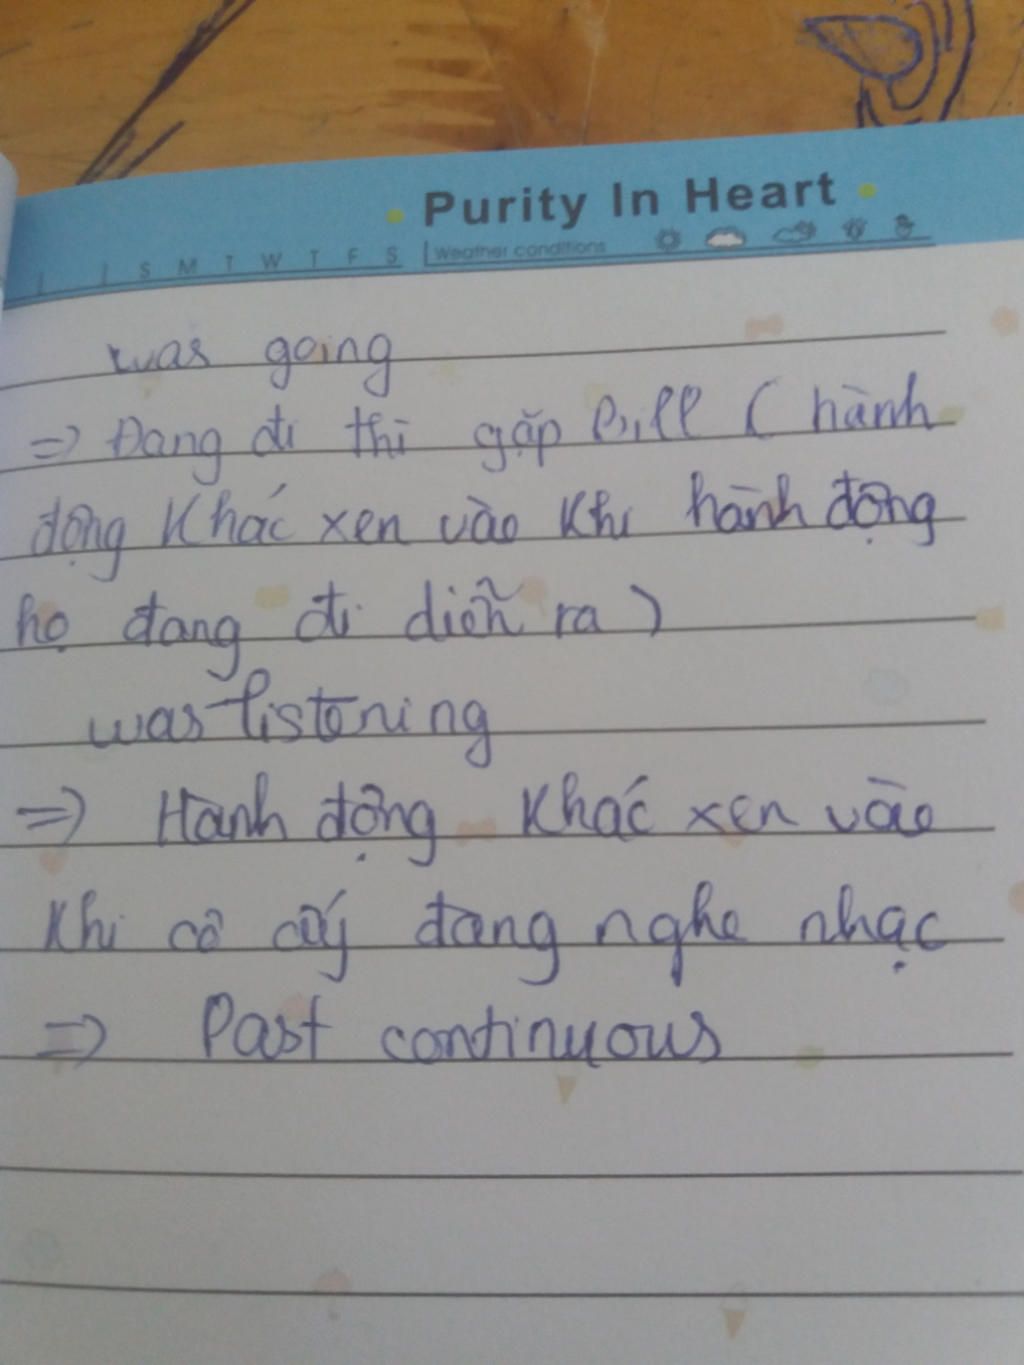 Purity In Heart
S M T W T F S Weather conditions
was going
=> Đang đi thì gặp Bill ( hành
động khác xen vào khi hành động
họ đang đi diễn ra )
was listening
=> Hành động khác xen vào
khi cô cấy đang nghe nhạc
=> Past continuous